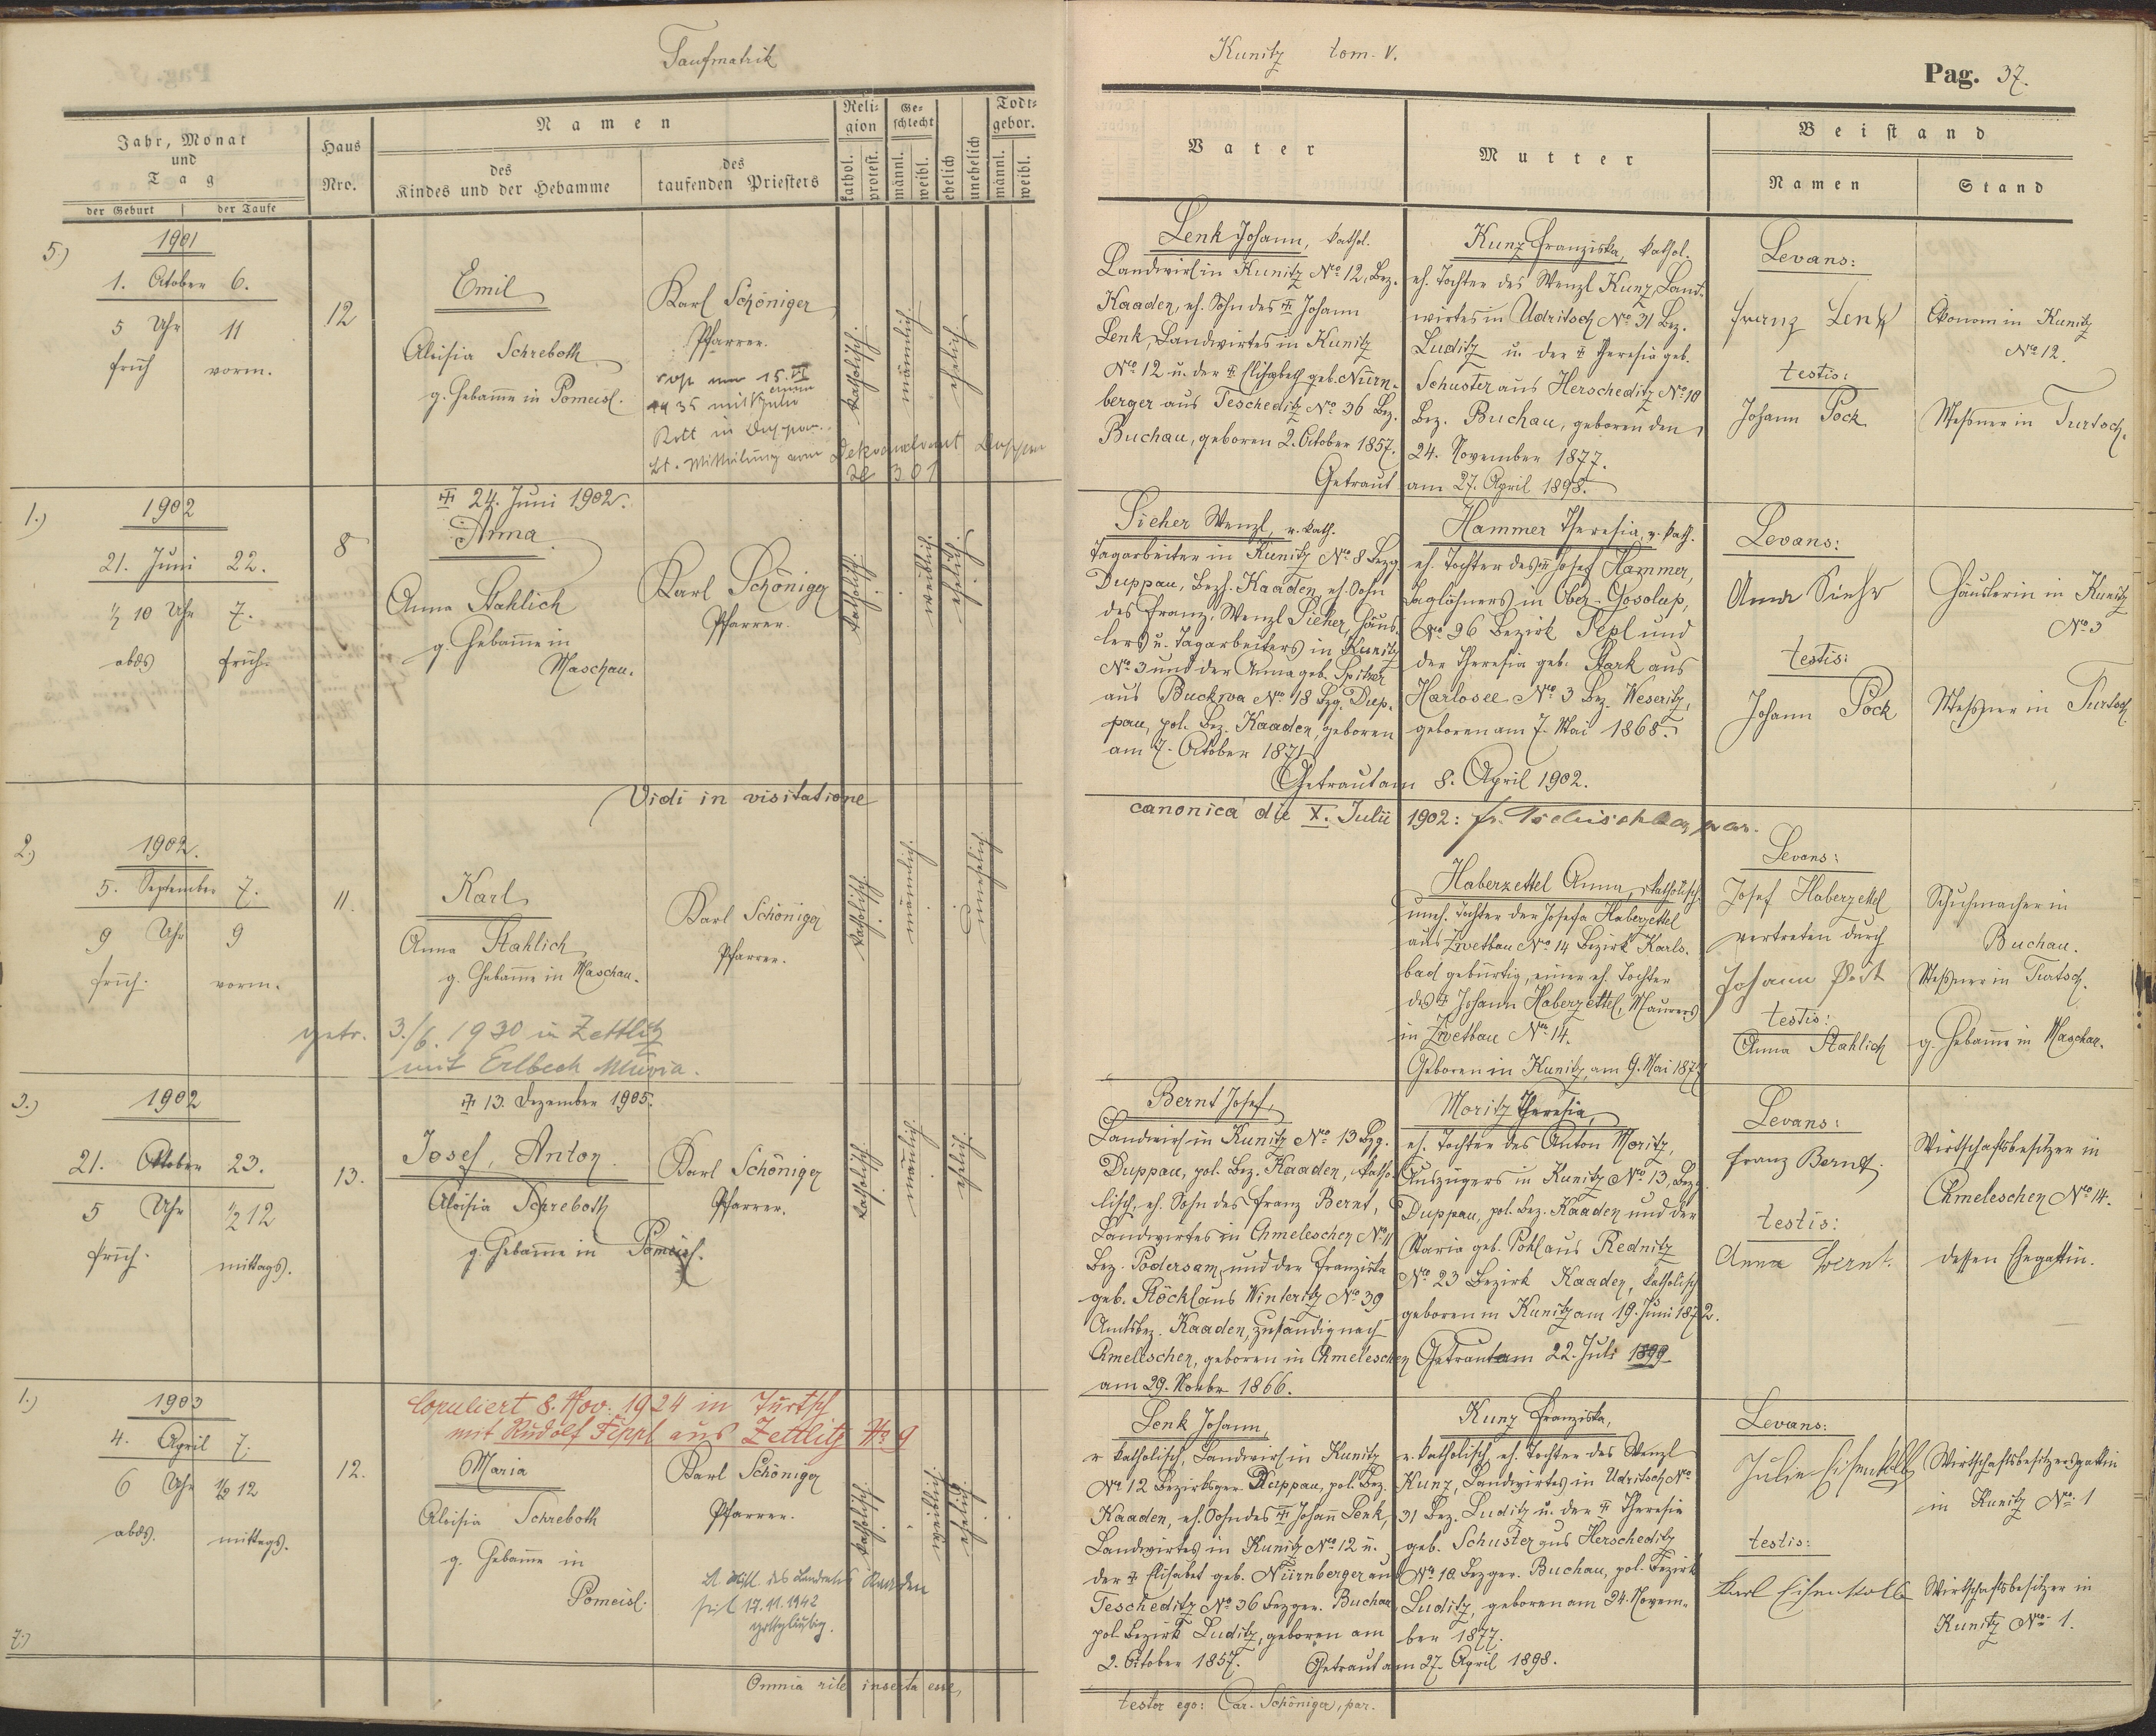 Taufmatrik
Jahr, Monat
und
Tag
der Geburt
der Taufe
Haus
Nro.
Namen
des
Kindes und der Hebamme
des
taufenden Priesters
Reli-
gion
kathol.
protest.
Ge-
schlecht
männl.
weibl.
ehelich
unehelich
Todt-
gebor.
männl.
weibl.
5.)
1901
1. October 6.
5 Uhr 11
früh vorm.
12
Emil
Aloisia Schreboth
g. Hebamme in Pomeisl.
Karl Schöniger
Pfarrer.
35 mit
Rott in Duppau.
lt. Mitteilung vom Dekanalamt Duppau
Zl 301
katholisch.
männlich
ehelich.
1.)
1902
21. Juni 22.
½ 10 Uhr 7.
abds früh.
8
✝ 24. Juni 1902.
Anna
Anna Stahlich
g. Hebamme in
Maschau.
Karl Schöniger
Pfarrer.
katholisch.
weiblich.
ehelich.
Vidi in visitatione
2.)
1902.
5. September 7.
9 Uhr 9
früh. vorm.
11.
Karl
Anna Stahlich
g. Hebamme in Maschau.
Karl Schöniger
Pfarrer.
katholisch.
männlich.
unehelich.
getr. 3./6. 1930 in Zettlitz
mit Erlbeck Maria.
3.)
1902
21. Oktober 23.
5 Uhr ½ 12
früh. mittags.
13.
✝ 13. Dezember 1905.
Josef, Anton
Aloisia Schreboth
g. Hebamme in Pomeisl.
Karl Schöniger
Pfarrer.
katholisch.
männlich.
ehelich.
1.)
1903
4. April 7.
6 Uhr ½ 12
abds. mittags.
12.
Copuliert 8. Nov. 1924 in Turtsch
mit Rudolf Tippl aus Zettlitz No 9
Maria
Aloisia Schreboth
g. Hebamme in
Pomeisl.
Karl Schöniger
Pfarrer.
lt. des Landrates Kaaden
seit 17.11.1942
gottgläubig.
katholisch.
weiblich.
ehelich.
Omnia rite inserta esse,
Kunitz tom. V.
Pag. 37.
Vater
Mutter
Beistand
Namen
Stand
Lenk Johann, kathol.
Landwirt in Kunitz No 12, Bez.
Kaaden, eh. Sohn des ✝ Johann
Lenk, Landwirtes in Kunitz
No 12 u. der ✝ Elisabeth geb. Nürn-
berger aus Tescheditz No 36 Bez.
Buchau, geboren 2. October 1857.
Kunz Franziska, kathol.
eh. Tochter des Wenzl Kunz, Land-
wirtes in Udritsch No 31 Bez.
Luditz u. der ✝ Theresia geb.
Schuster aus Herscheditz No 10
Bez. Buchau, geboren den
24. November 1877.
Getraut am 27. April 1898.
Levans:
Franz Lenk
testis:
Johann Pock
Ökonom in Kunitz
No 12.
Meßner in Turtsch.
Sieher Wenzl, r. kath.
Tagarbeiter in Kunitz No 8 Bezg
Duppau, Bezh. Kaaden, eh. Sohn
des Franz, Wenzl Sieher, Häus-
lers u. Tagarbeiters in Kunitz
No 3 und der Anna geb. Spitzer
aus Buckwa No 18 Bzg. Dup-
pau, pol. Bez. Kaaden, geboren
am 7. October 1871
Hammer Theresia, r. kath.
eh. Tochter des Josef Hammer,
Taglöhners in Ober-Gosolup,
No 26 Bezirk Tepl und
der Theresia geb. Stark aus
Harlosee No 3 Bez. Weseritz,
geboren am 7. Mai 1868.
Getraut am 8. April 1902.
Levans:
Anna Sieher
testis:
Johann Pock
Häuslerin in Kunitz
No 3
Meßner in Turtsch
canonica die X. Julii 1902:
Haberzettel Anna, katholisch.
uneh. Tochter der Josefa Haberzettel
aus Zwetbau No 14 Bezirk Karls-
bad gebürtig, einer eh. Tochter
des ✝ Johann Haberzettel, Maurers
in Zwetbau No 14.
Geboren in Kunitz, am 9. Mai 1877
Levans:
Josef Haberzettel
vertreten durch
Johann Pock
testis:
Anna Stahlich
Schuhmacher in
Buchau.
Meßner in Turtsch.
g. Hebamme in Maschau.
Bernt Josef,
Landwirt in Kunitz No 13 Bzg.
Duppau, pol. Bez. Kaaden, katho-
lisch, eh. Sohn des Franz Bernt,
Landwirtes in Chmeleschen No 11
Bez. Podersam, und der Franziska
geb. Stöckl aus Winteritz No 39
Amtsbez. Kaaden, zuständig nach
Chmeleschen, geboren in Chmeleschen
am 29. Novbr. 1866.
Moritz Theresia,
eh. Tochter des Anton Moritz,
Auszüglers in Kunitz No 13, Bez.
Duppau, pol. Bez. Kaaden und der
Maria geb. Pohl aus Rednitz
No 23 Bezirk Kaaden, katholisch
geboren in Kunitz am 19. Juni 1872.
Getraut am 22. Juli 1899
Levans:
Franz Bernt.
testis:
Anna Bernt.
Wirtschaftsbesitzer in
Chmeleschen No 14.
dessen Ehegattin.
Lenk Johann,
r. katholisch, Landwirt in Kunitz
No 12 Bezirksger. Duppau, pol. Bez.
Kaaden, eh. Sohn des ✝ Johann Lenk,
Landwirtes in Kunitz No 12 u.
der ✝ Elisabet geb. Nürnberger aus
Tescheditz No 36 Bezger. Buchau
pol. Bezirk Luditz, geboren am
2. October 1857.
Kunz Franziska,
r. katholisch, eh. Tochter des Wenzl
Kunz, Landwirtes in Udritsch No
31 Bez. Luditz u. der ✝ Theresia
geb. Schuster aus Herscheditz
No 10 Bezger. Buchau, pol. Bezirk
Luditz, geboren am 24. Novem-
ber 1877.
Getraut am 27. April 1898.
Levans:
Julie Eisenkolb
testis:
Karl Eisenkolb
Wirtschaftsbesitzersgattin
in Kunitz No 1
Wirtschaftsbesitzer in
Kunitz No 1.
testor ego: Car. Schöniger, par.